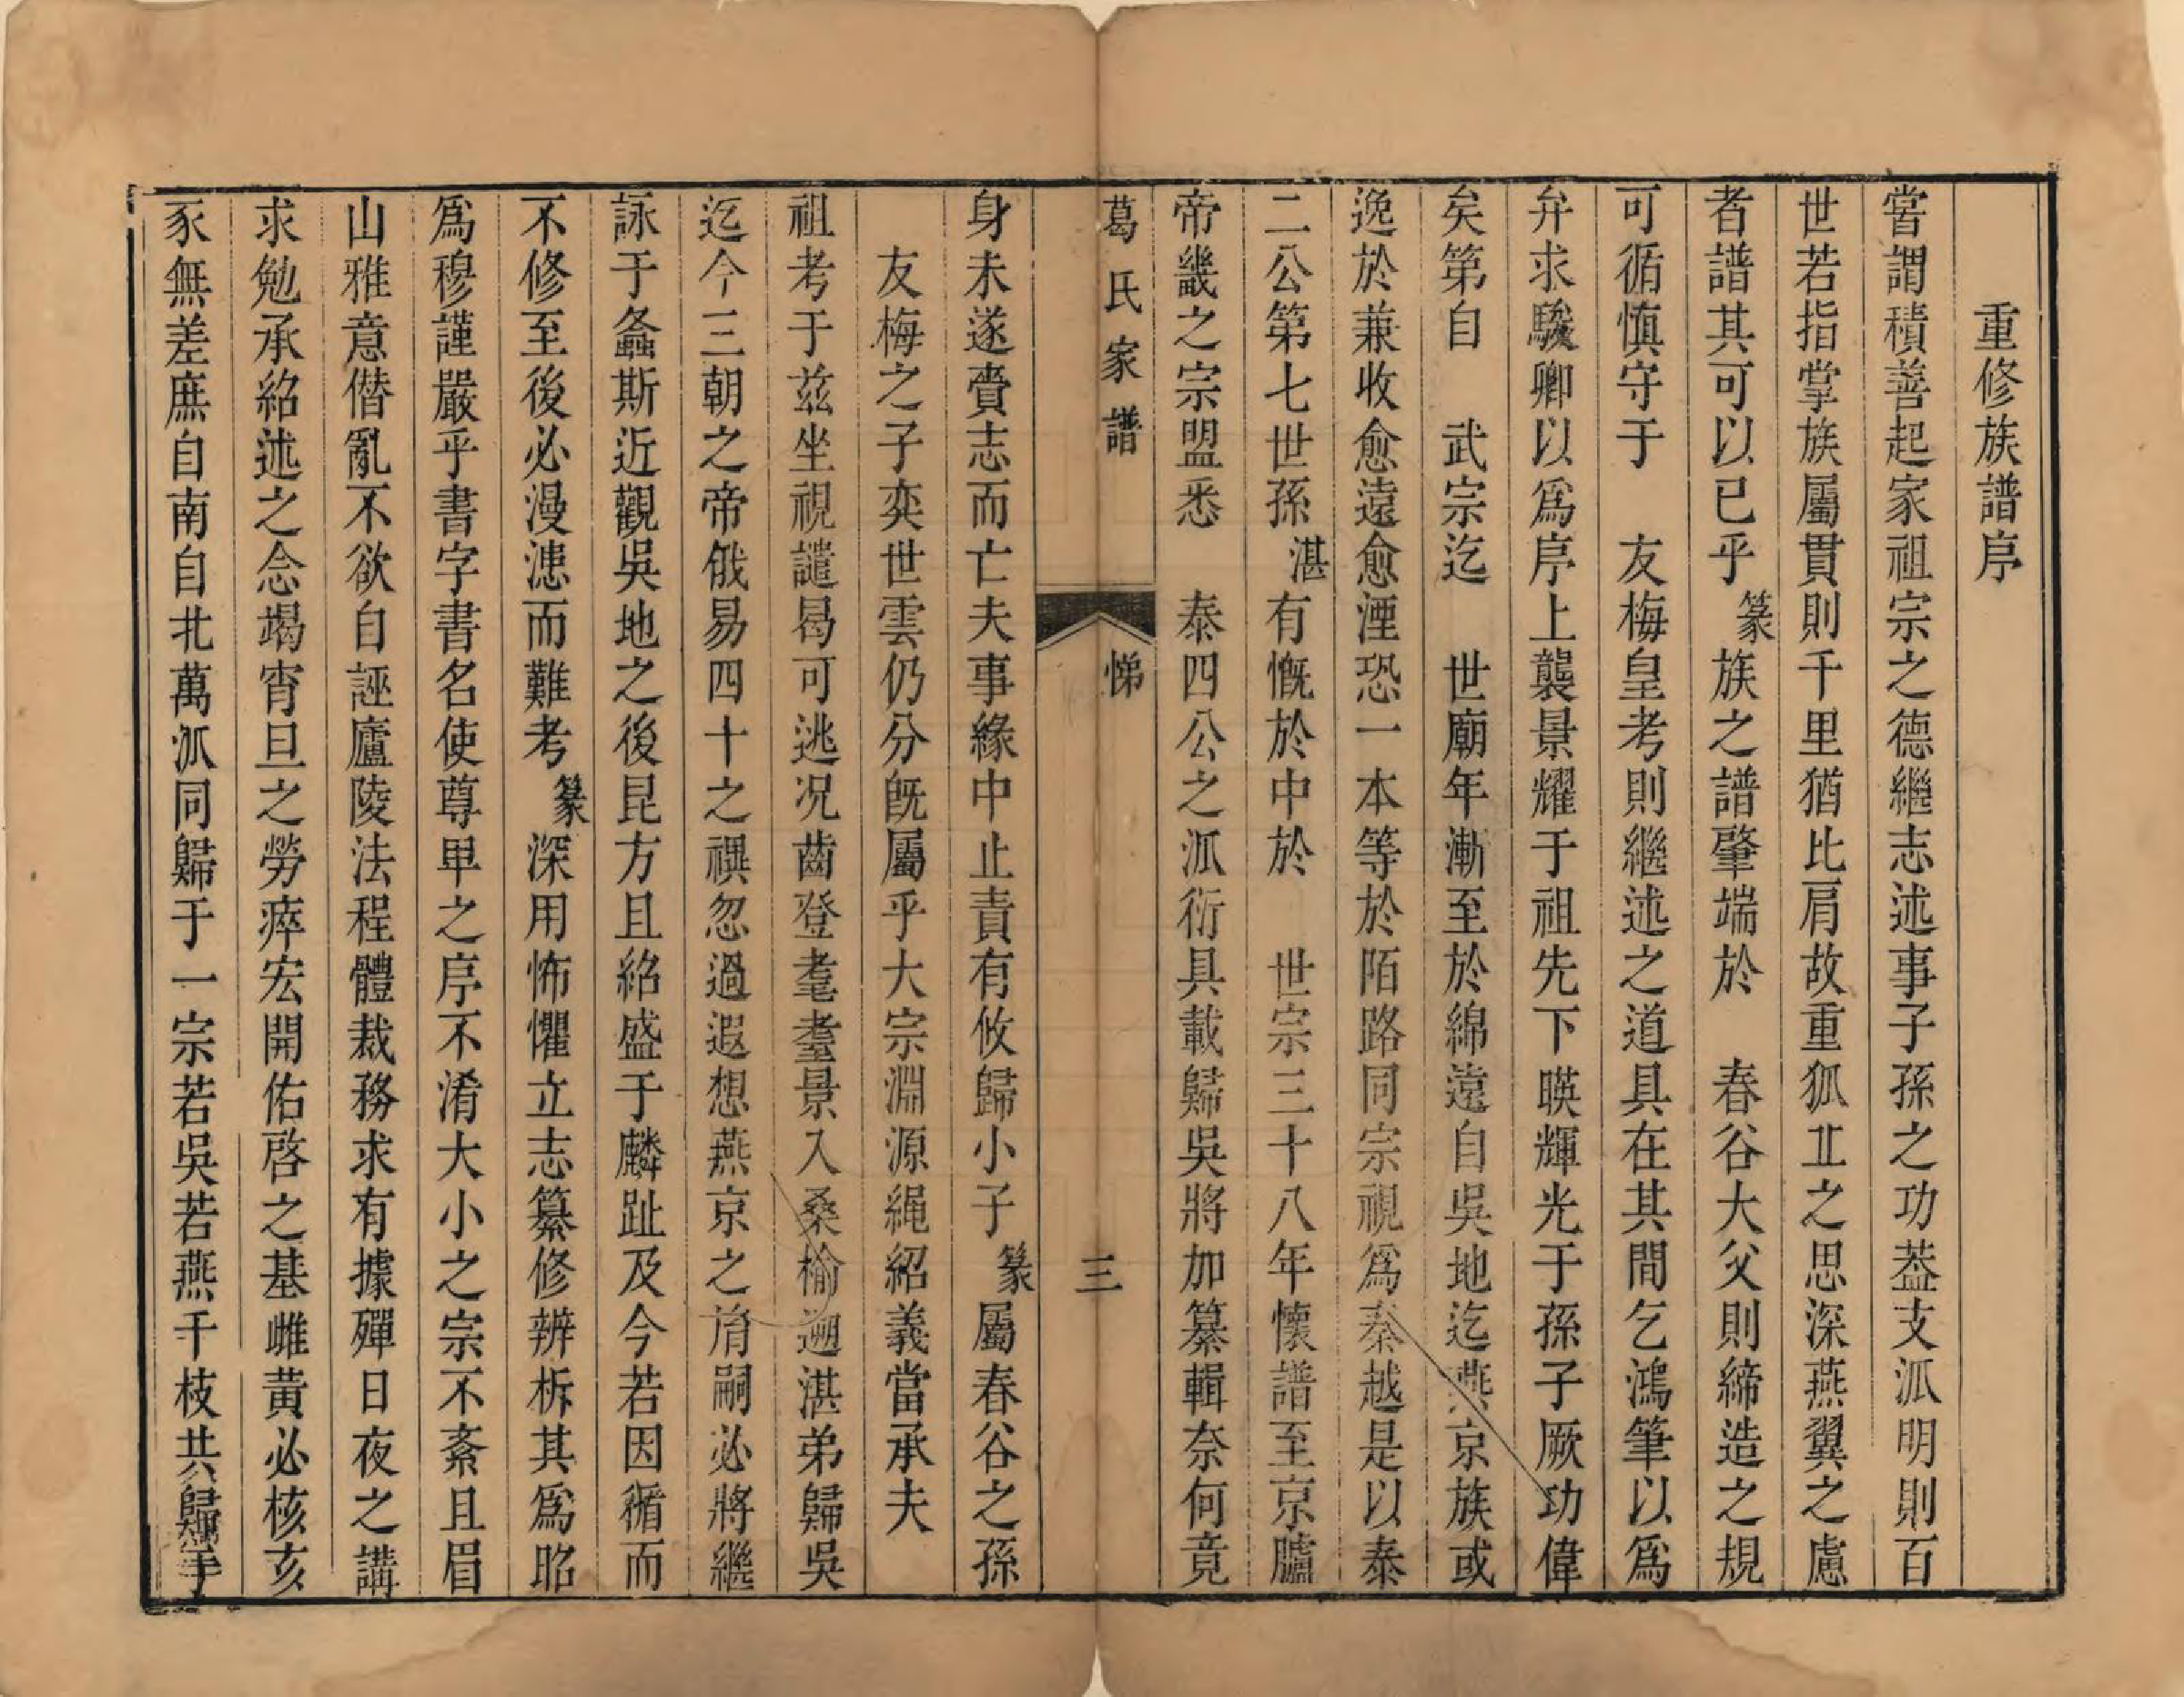 重修族譜序
嘗謂積善起家祖宗之德繼志述事子孫之功葢支派明則百
世若指掌族屬貫則千里猶比肩故重狐丘之思深燕翼之慮
者譜其可以已乎篆族之譜肇端於 春谷大父則締造之規
可循慎守于 友梅皇考則繼述之道具在其間乞鴻筆以為
弁求駿卿以為序上襲景耀于祖先下暎輝光于孫子厥功偉
矣第自 武宗迄 世廟年漸至於綿遠自吳地迄燕京族或
逸於兼收愈遠愈湮恐一本等於陌路同宗視為秦越是以泰
二公第七世孫湛有慨於中於 世宗三十八年懷譜至京臚
帝畿之宗盟悉 泰四公之派衍具載歸吳將加纂輯奈何竟
葛氏家譜 悌 三
身未遂賫志而亡夫事緣中止責有攸歸小子篆屬春谷之孫
友梅之子奕世雲仍分旣屬乎大宗淵源繩紹義當承夫
祖考于茲坐視譴曷可逃况齒登耄耋景入桑榆遡湛弟歸吳
迄今三朝之帝俄易四十之禩忽過遐想燕京之胤嗣必將繼
詠于螽斯近觀吳地之後昆方且紹盛于麟趾及今若因循而
不修至後必漫漶而難考篆深用怖懼立志纂修辨析其為昭
為穆謹嚴乎書字書名使尊卑之序不淆大小之宗不紊且眉
山雅意僭亂不欲自誣廬陵法程體裁務求有據殫日夜之講
求勉承紹述之念竭宵旦之勞瘁宏開佑啓之基雌黃必核亥
豕無差庶自南自北萬派同歸于一宗若吳若燕千枝共歸乎